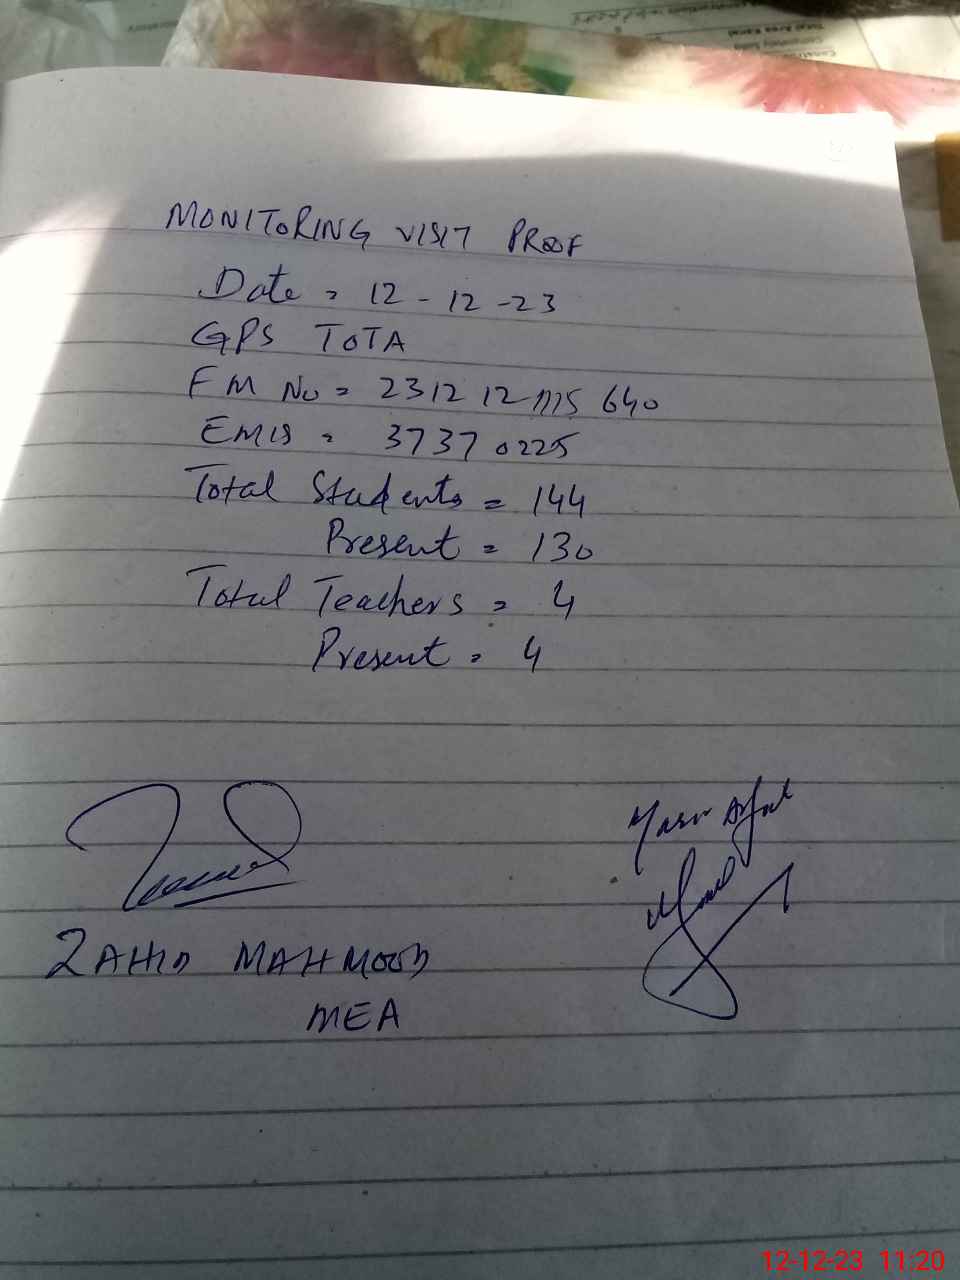 MONITORING VISIT PROOF
Date = 12-12-23
GPS TOTA
FM No = 231212 MS 640
EMIS = 37370225
Total Students = 144
Present = 130
Total Teachers = 4
Present = 4
Yasir Afzal
ZAHID MAHMOOD
MEA
12-12-23 11:20